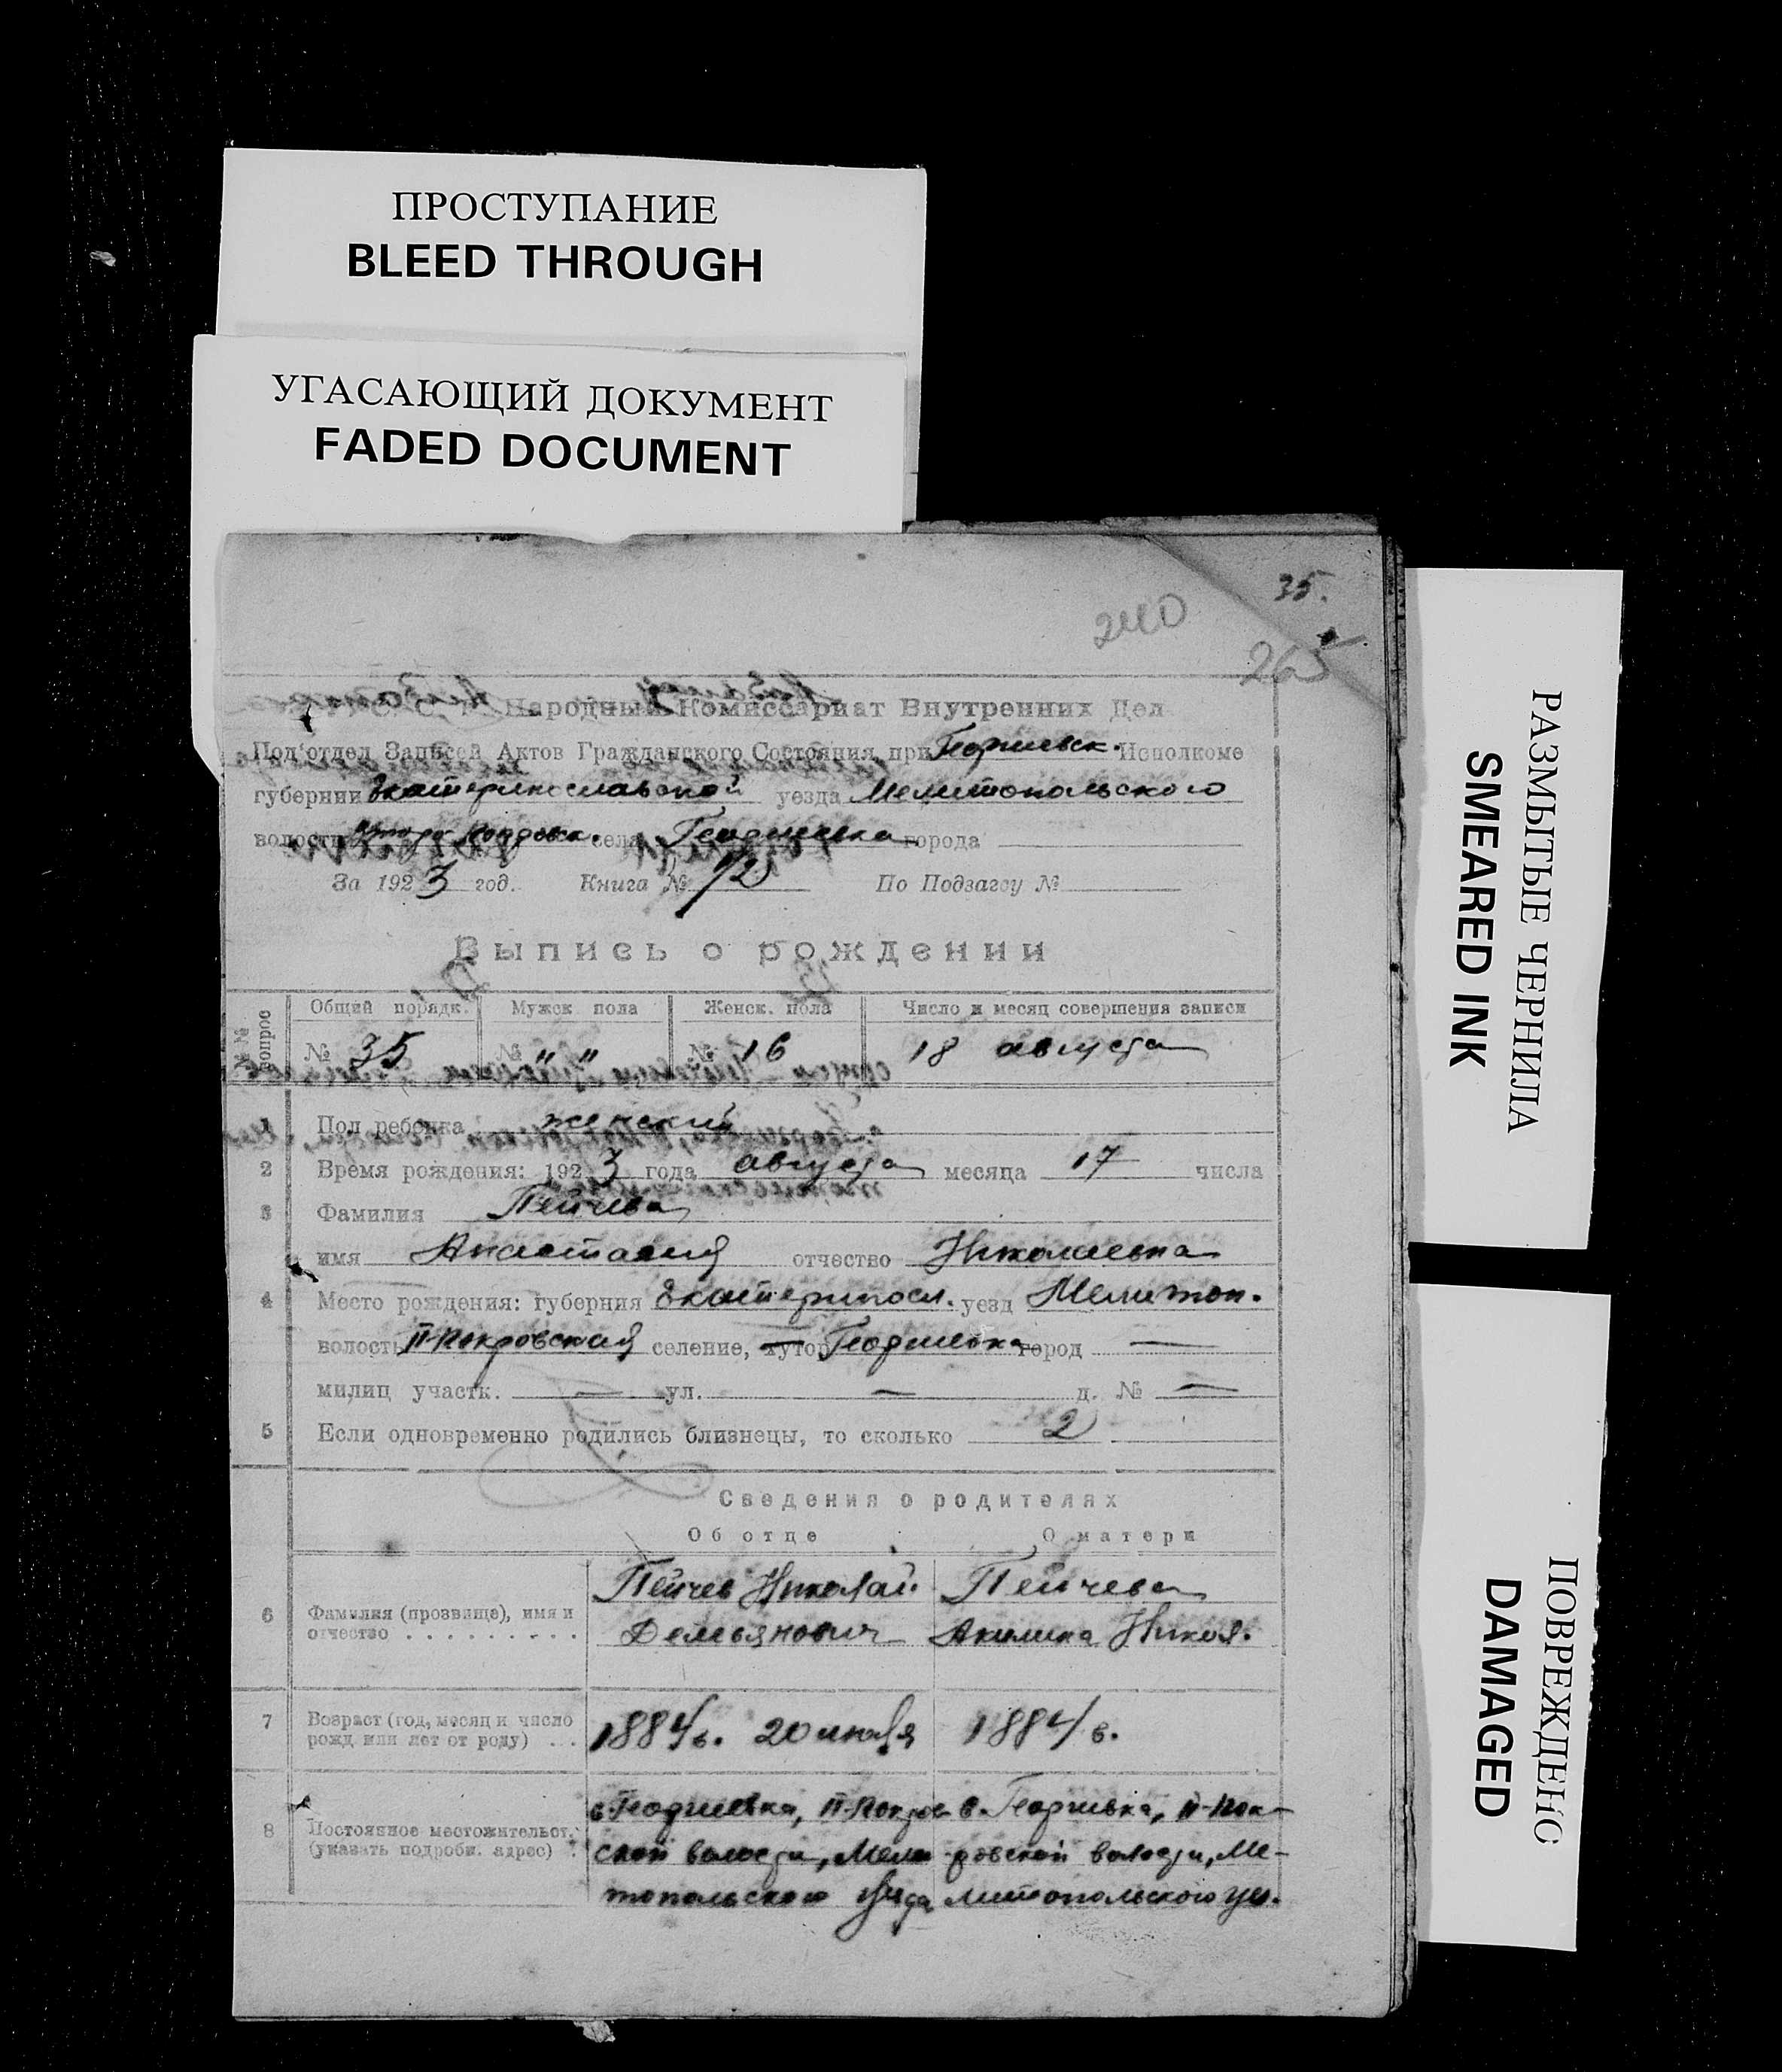 ПРОСТУПАНИЕ
BLEED THROUGH
УГАСАЮЩИЙ ДОКУМЕНТ
FADED DOCUMENT
35.
240
265
Народный Комиссариат Внутренних Дел
Под'отдел Записей Актов Гражданского Состояния при Георгиевск. Исполкоме
губернии Екатеринославской уезда Мелитопольского
волости села Георгиевка города
За 1923 год. Книга № 1/2 По Подзагсу №
Выпись о рождении
№№ вопрос
Общий порядк. Мужск. пола Женск. пола Число и месяц совершения записи
№ 35 № " " № 16 18 августа
1 Пол ребенка женский
2 Время рождения: 1923 года августа месяца 17 числа
3 Фамилия Пейчева
имя Анастасия отчество Николаевна
4 Место рождения: губерния Екатериносл. уезд Мелитоп.
волость II-Покровская селение, хутор Георгиевка город —
милиц участк. — ул. — д. № —
5 Если одновременно родились близнецы, то сколько 2
Сведения о родителях
Об отце О матери
Пейчев Николай Пейчева
6 Фамилия (прозвище), имя и
отчество . . . . . . . . . Демьянович Акилина Никол.
7 Возраст (год, месяц и число
рожд или лет от роду) . . . 1884 г. 20 1884 г.
с. Георгиевка, II-Покров- с. Георгиевка, II-Пок-
8 Постоянное местожительст.
(указать подробн. адрес) . ской волости, Мели- ровской волости, Ме-
топольского уезда литопольского уез.
РАЗМЫТЫЕ ЧЕРНИЛА
SMEARED INK
ПОВРЕЖДЕНС
DAMAGED